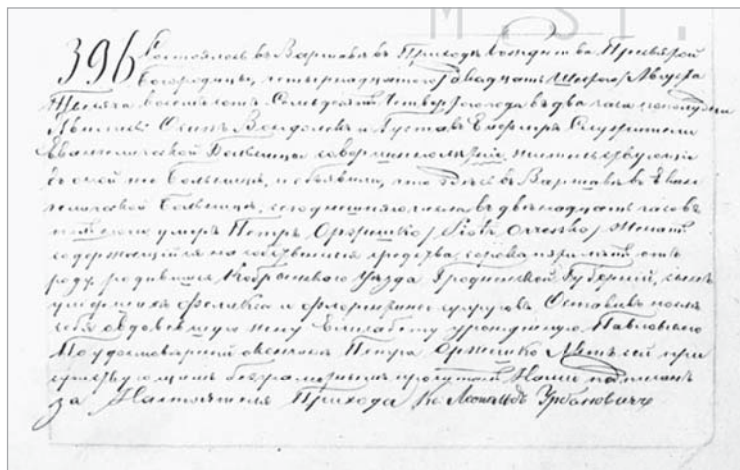 M.ST.
396 Состоялось въ Варшавѣ въ Приходѣ Рождества Пресвятой
Богородицы, четырнадцатаго /двадцать Шестаго/ Августа
Тысяча восемьсотъ Семьдесятъ Четвертаго года въ два часа пополудни
Явились Осипъ и Густавъ Служители
Евангелической Больницы совершеннолѣтніе, жительствующіе
въ оной же Больницѣ, и объявили, что здѣсь въ Варшавѣ въ Еван
гелической Больницѣ, сегодняшняго числа въ двѣнадцать часовъ
умеръ Петръ Оржешко /Piotr Orzeszko/ Женатъ
содержащійся на собственныя средства, сорока пяти лѣтъ отъ
роду, родившійся Кобрынскаго Уѣзда Гродненской Губерніи, сынъ
умершихъ Феликса и Флорентины супруговъ Оставивъ послѣ
себя овдовѣвшую жену Елисабету урожденную Павловскую
По удостовѣреніи о кончинѣ Петра Оржешко Актъ сей при
сутствующимъ безграмотнымъ прочитанъ Нами подписанъ
За Настоятеля Прихода Кс. Урбановичъ